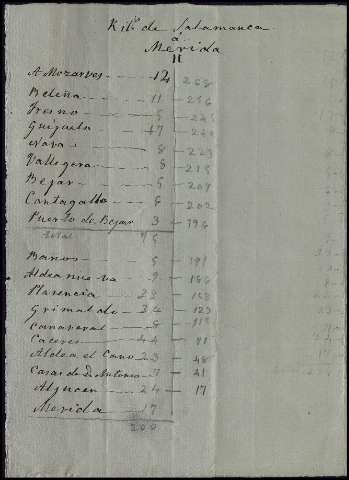 Kil.s de Salamanca
á
Mérida
A Mozarves 12 268
Beleña 11 256
Fresno 5 245
Guijuelo 17 240
Nava 8 223
Vallegera 8 215
Bejar 5 207
Cantagallo 6 202
Puerto de Bejar 3 196
total 75
Baños
Aldea nueva 9
Plasencia
Grimaldo 34 123
Cañaveral 8 115
Caceres 44 81
Aldea el Cano 23 48
Casas de d. Antonio 7 41
Aljucen 24 17
Merida 17